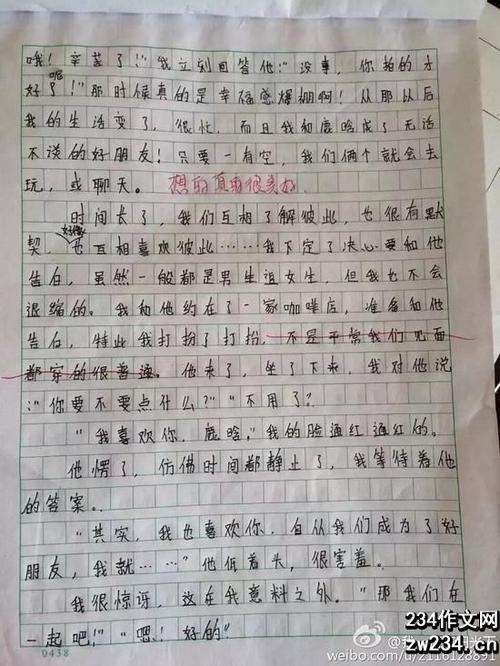 哦！辛苦了！"我立刻回答他："没事，你拍的才
好呢！"那时候真的是幸福感爆棚啊！从那以后
我的生活变了，很忙，而且我和鹿晗成了无话
不说的好朋友！只要一有空，我们俩个就会去
玩，或聊天。想的真的很美好
时间长了，我们互相了解彼此，也很有默
契，好像也互相喜欢彼此……我下定了决心要和他
告白，虽然一般都是男生追女生，但我也不会
退缩的。我和他约在了一家咖啡店，准备和他
告白，特此我打扮了打扮，不是平常我们见面
都穿的很普通。他来了，坐了下来，我对他说
："你要不要点什么？""不用了？
"我喜欢你，鹿晗。"我的脸通红通红的。
他愣了，仿佛时间都静止了，我等待着他
的答案。
"其实，我也喜欢你，自从我们成为了好
朋友，我就……"他低着头，很害羞。
我很惊讶，这在我意料之外。"那我们在
一起吧！""嗯！好的"
0438
234作文网
zw234.cn
weibo.com/u/2116128891